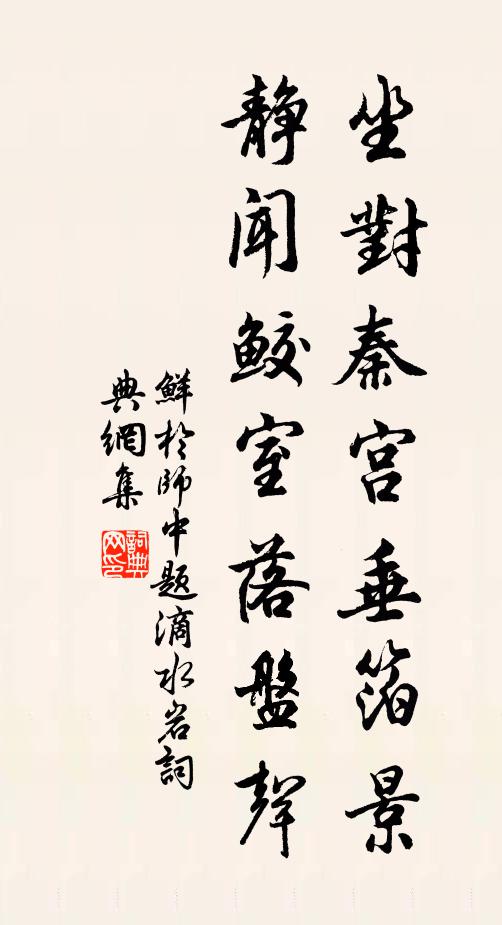 坐對秦宮垂箔景
靜聞鮫室落盤聲
鮮於師中題滴水岩詞
典網集
詞典網印